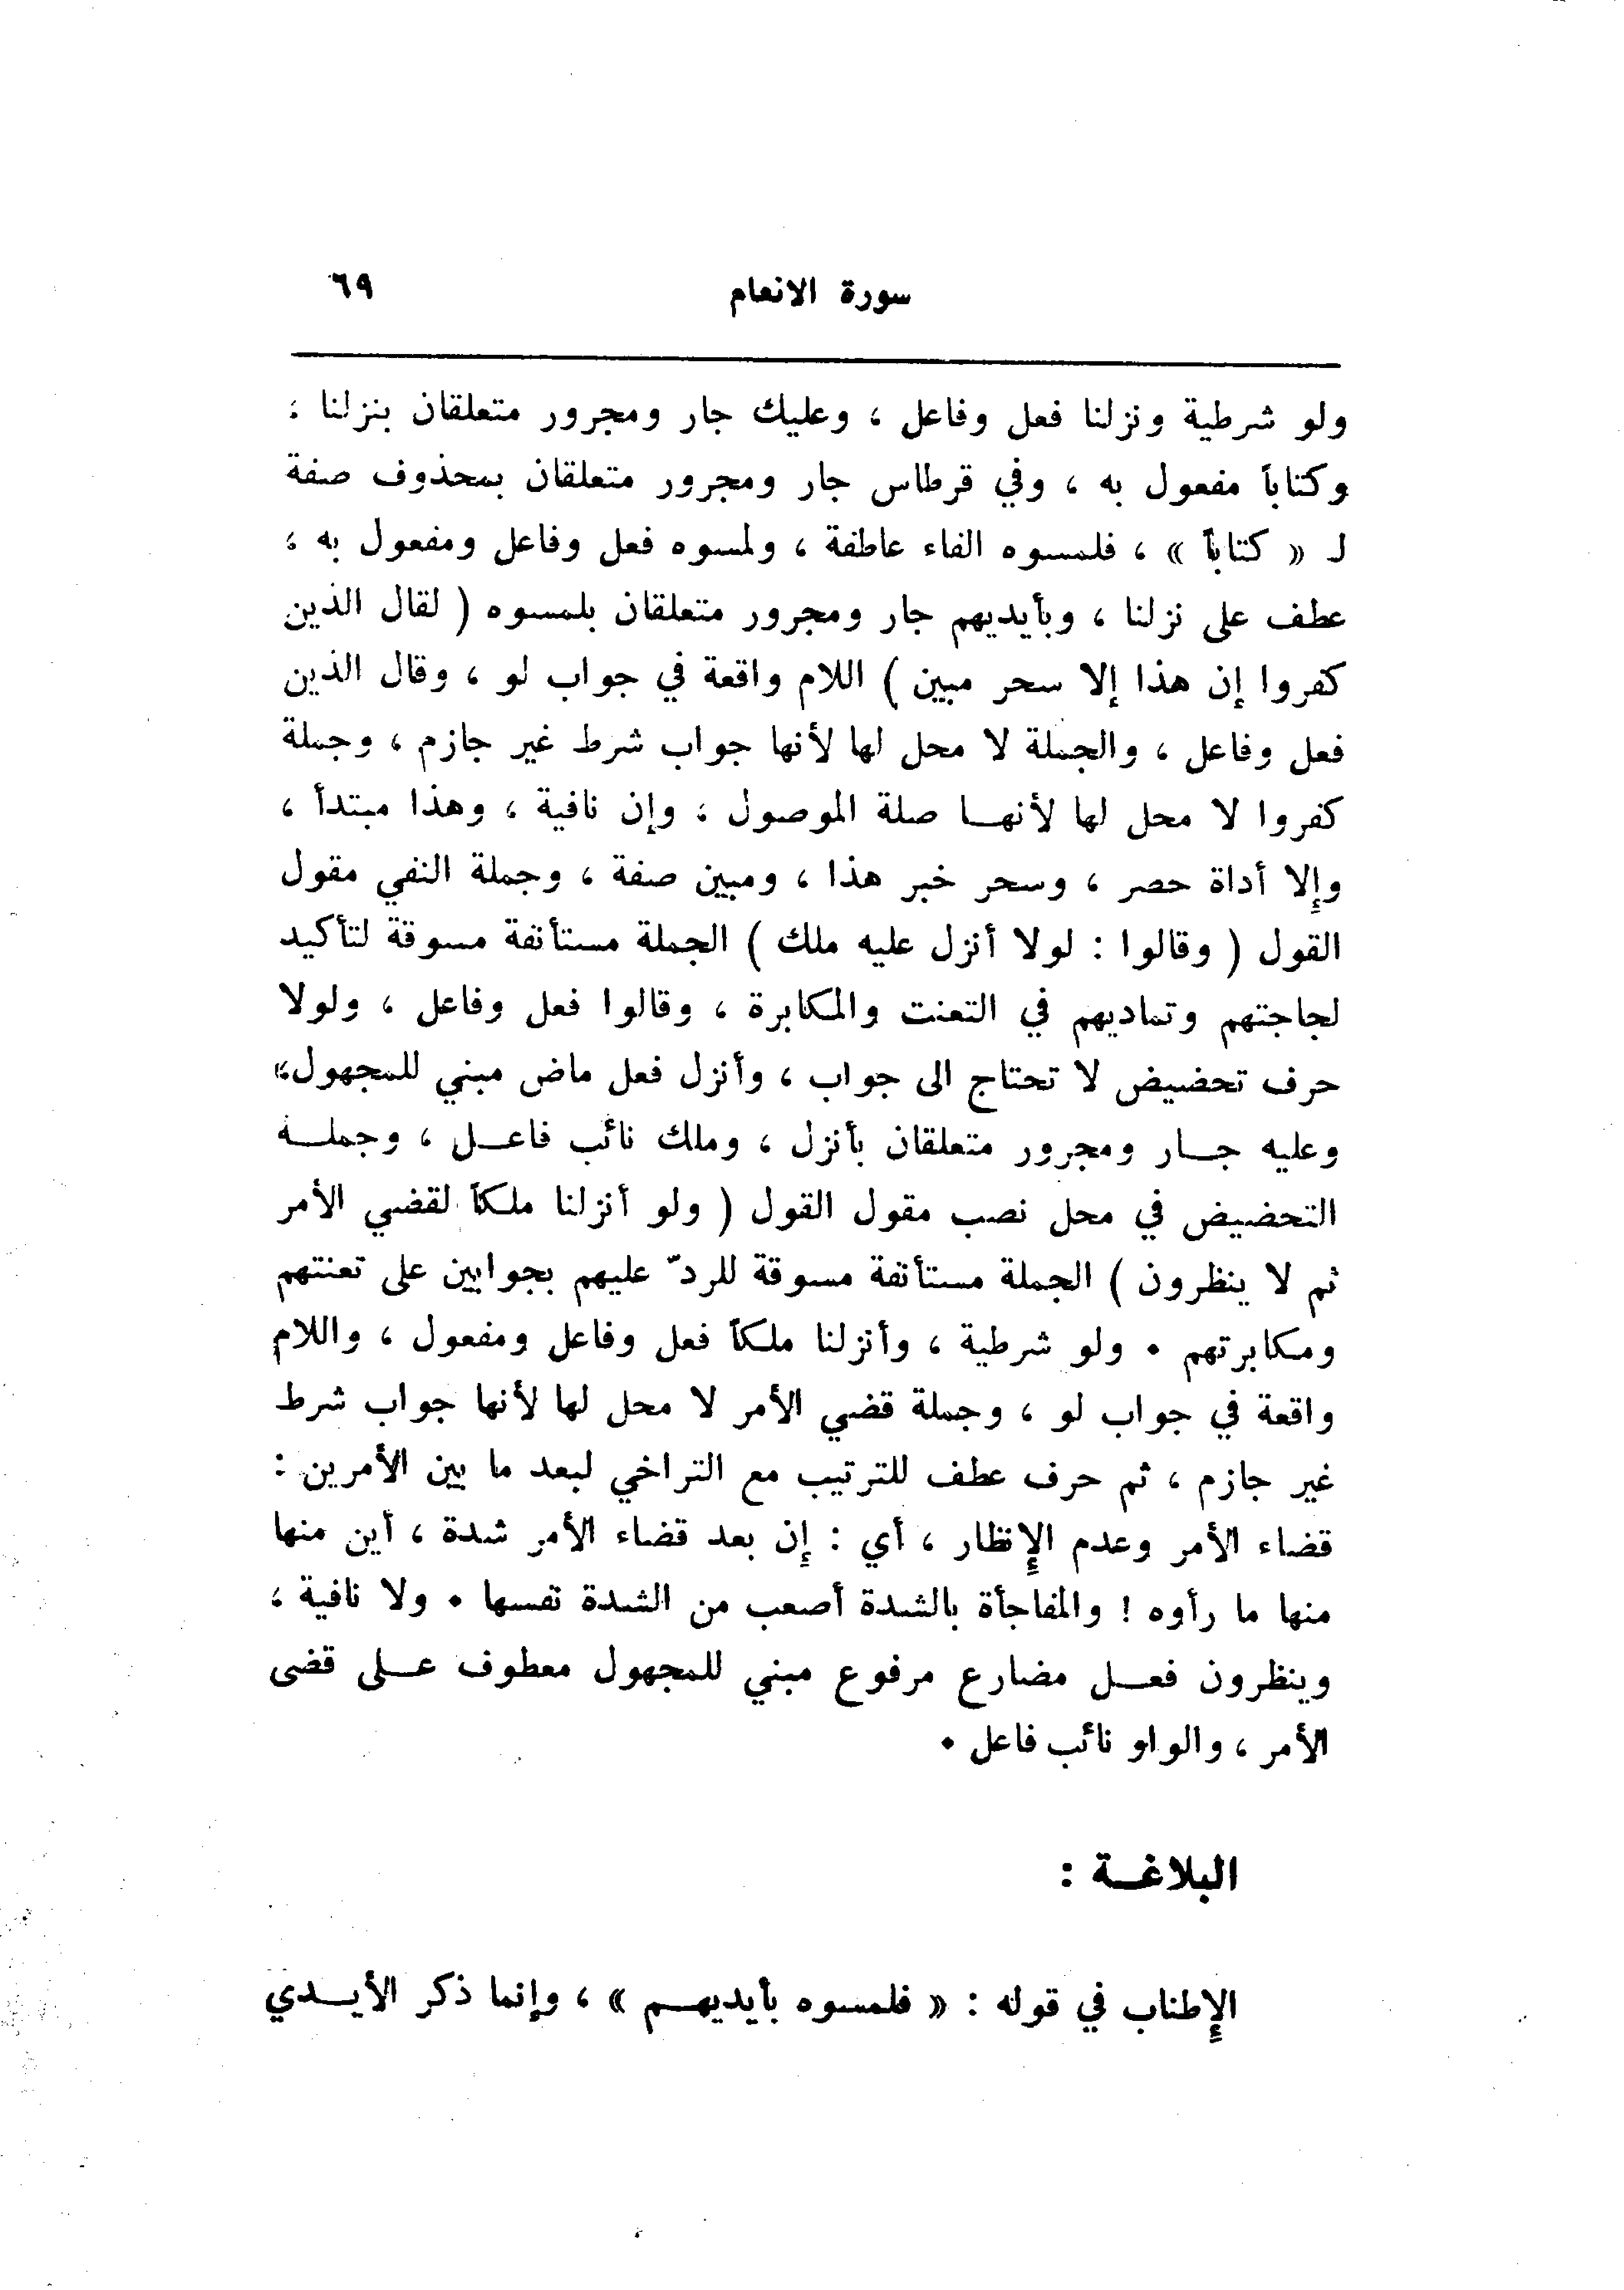 سورة الانعام ٦٩
ولو شرطية ونزلنا فعل وفاعل ، وعليك جار ومجرور متعلقان بنزلنا ؛
وكتاباً مفعول به ، وفي قرطاس جار ومجرور متعلقان بمحذوف صفة
لـ « كتاباً » ، فلمسوه الفاء عاطفة ، ولمسوه فعل وفاعل ومفعول به ،
عطف على نزلنا ، وبأيديهم جار ومجرور متعلقان بلمسوه ( لقال الذين
كفروا إن هذا إلا سحر مبين ) اللام واقعة في جواب لو ، وقال الذين
فعل وفاعل ، والجملة لا محل لها لأنها جواب شرط غير جازم ، وجملة
كفروا لا محل لها لأنهـا صلة الموصول ؛ وإن نافية ، وهذا مبتدأ ،
وإلا أداة حصر ، وسحر خبر هذا ، ومبين صفة ، وجملة النفي مقول
القول ( وقالوا : لولا أنزل عليه ملك ) الجملة مستأنفة مسوقة لتأكيد
لجاجتهم وتماديهم في التعنت والمكابرة ، وقالوا فعل وفاعل ، ولولا
حرف تحضيض لا تحتاج الى جواب ، وأنزل فعل ماض مبني للمجهول،
وعليه جـار ومجرور متعلقان بأنزل ، وملك نائب فاعـل ، وجملـة
التحضيض في محل نصب مقول القول ( ولو أنزلنا ملكاً لقضي الأمر
ثم لا ينظرون ) الجملة مستأنفة مسوقة للردّ عليهم بجوابين على تعنتهم
ومكابرتهم • ولو شرطية ، وأنزلنا ملكاً فعل وفاعل ومفعول ، واللام
واقعة في جواب لو ، وجملة قضي الأمر لا محل لها لأنها جواب شرط
غير جازم ، ثم حرف عطف للترتيب مع التراخي لبعد ما بين الأمرين :
قضاء الأمر وعدم الإنظار ، أي : إن بعد قضاء الأمر شدة ، أين منها
منها ما رأوه ! والمفاجأة بالشدة أصعب من الشدة نفسها • ولا نافية ،
وينظرون فعـل مضارع مرفوع مبني للمجهول معطوف عـلى قضى
الأمر ، والواو نائب فاعل •
البلاغـة :
الإطناب في قوله : « فلمسوه بأيديهـم » ، وإنما ذكر الأيـدي